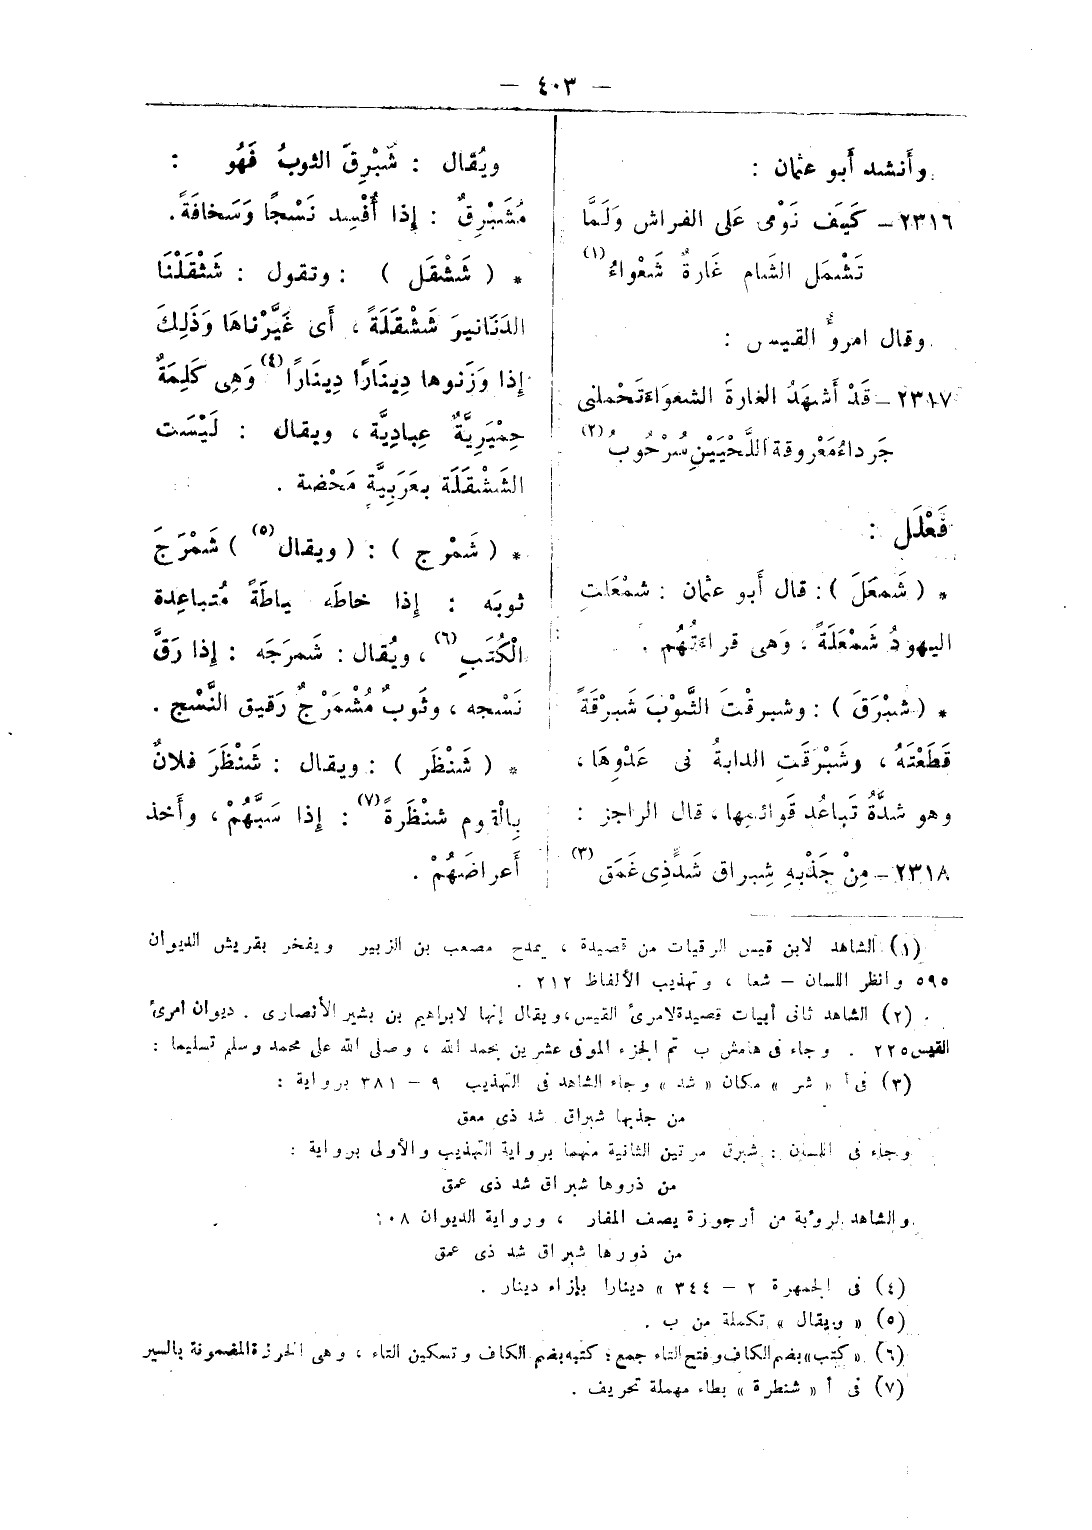 — ٤٠٣ —
وأَنشد أَبو عثمان :
٢٣١٦ – كَيفَ نَوْمى عَلى الفراش وَلَمَّا
تَشْمَل الشَام غَارةٌ شَعْواءُ (١)
وقال امرؤ القيس :
٢٣١٧ – قَدْ أَشهَدُ الغارةَ الشعوَاءَ تَحْملنى
جَرداءُ مَعْروقة اللَّحْيَيْنِ سُرْحُوبُ (٢)
فَعْلَل :
* ( شَمعَلَ ) : قال أَبو عثمان : شمْعَلتِ
اليهودُ شَمْعَلَةً ، وَهى قراءتُهُم .
* ( شبْرَقَ ) : وشبرقْتَ الثَّوْبَ شَبرْقَةً
قَطَعْتَهُ ، وشَبْرَقَتِ الدابةُ فى عَدْوِهَا ،
وهو شدَّةُ تَباعُد قَوائمِها ، قال الراجز :
٢٣١٨ – مِنْ جَذْبِهِ شِبراق شَدٍّ ذِى غَمَق (٣)
ويُقال : شَبْرِقَ الثوبُ فَهُو :
مُشَبْرِقٌ : إذا أُفْسِد نَسْجًا وَسَخافَةً .
* ( شَشْقَل ) : وتقول : شَشْقَلْنَا
الدَنَانيرَ شَشْقَلَةً ، أَى عَيَّرْناهَا وَذَلِكَ
إذا وَزَنوها دِينَارًا دِينَارًا (٤) وَهِى كَلِمَةٌ
حِمْيَرِيَّةٌ عِبادِيَّة ، ويقال : لَيْسَت
الشَشْقَلَة بعَرَبِيَّةٍ مَحْضة .
* ( شَمْرج ) : ( ويقال (٥) ) شَمْرَجَ
ثوبَه : إذا خاطَه ياطَةً مُتباعِدة
الْكُتَبِ (٦) ، ويُقال : شَمرَجَه : إذا رَقَّ
نَسْجه ، وثَوبٌ مُشْمَرْجٌ رَقيق النَّسْج .
* ( شَنْظَر ) : ويقال : شَنْظَرَ فلانٌ
بِالْقوم شنْظَرةً (٧) : إذا سَبَّهُمْ ، وأَخذ
أَعراضَهُمْ .
(١) الشاهد لابن قيس الرقيات من قصيدة ، يمدح مصعب بن الزبير ويفخر بقريش الديوان
٥٩٥ وانظر اللسان – شعا ، وتهذيب الألفاظ ٢١٢ .
(٢) الشاهد ثانى أبيات قصيدة لامرئ القيس ، ويقال إنها لابراهيم بن بشير الأنصارى . ديوان امرئ
القيس ٢٢٥ . وجاء فى هامش ب تم الجزء الموفى عشرين بحمد الله ، وصلى الله على محمد وسلم تسليما :
(٣) فى أ « شر » مكان « شد » وجاء الشاهد فى التهذيب ٩ – ٣٨١ برواية :
من جذبها شبراق شد ذى معق
وجاء فى اللسان : شبرق مرتين الثانية منهما برواية التهذيب والأولى برواية :
من ذروها شبراق شد ذى عمق
والشاهد لرؤبة من أرجوزة يصف المفار ، ورواية الديوان ١٠٨
من ذورها شبراق شد ذى عمق
(٤) فى الجمهرة ٢ – ٣٤٤ » دينارا بإزاء دينار .
(٥) « ويقال » تكملة من ب .
(٦) « كتب » بضم الكاف وفتح التاء جمع : كتبه بضم الكاف وتسكين التاء ، وهى الخرزة المضمونة بالسير
(٧) فى أ « شنطرة » بطاء مهملة تحريف .